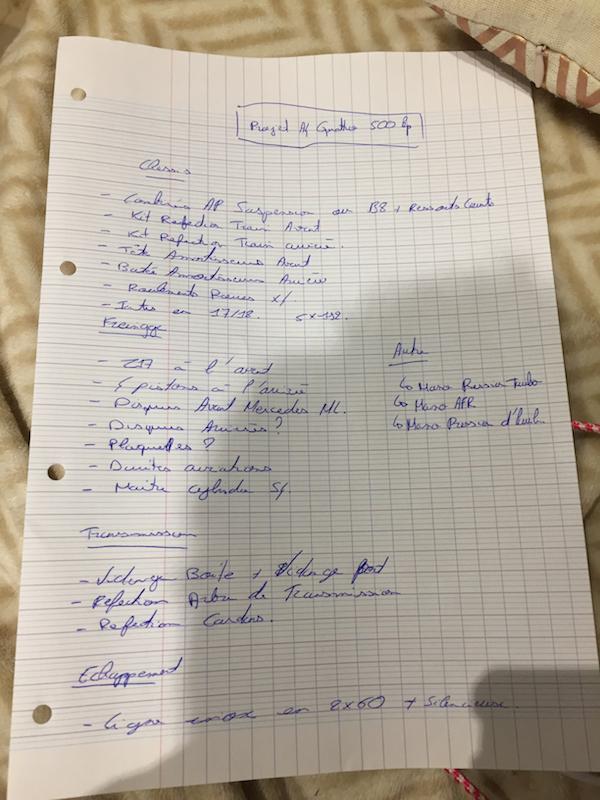 Projet A4 Quattro 500 hp
Chassis
- Combinés AP Suspension ou B8 + Ressorts Courts
- Kit Refection Train Avant
- Kit Refection Train arrière.
- Tête Amortisseurs Avant
- Butée Amortisseurs Arrière
- Roulements Roues x4
- Jantes en 17/18. 5x112.
Freinage
- Z17 à l'avant
- 4 pistons à l'arrière
- Disques Avant Mercedes ML.
- Disques Arrières ?
- Plaquettes ?
- Durites aviations
- Maitre cylindre S4.
Autre
↳ Mano Pression Turbo
↳ Mano AFR
↳ Mano Pression d'huile
Transmission
- Vidange Boite + Vidange pont
- Refection Arbre de Transmission
- Refection Cardans.
Echappement
- Ligne inox en 2x60 + Silencieux.